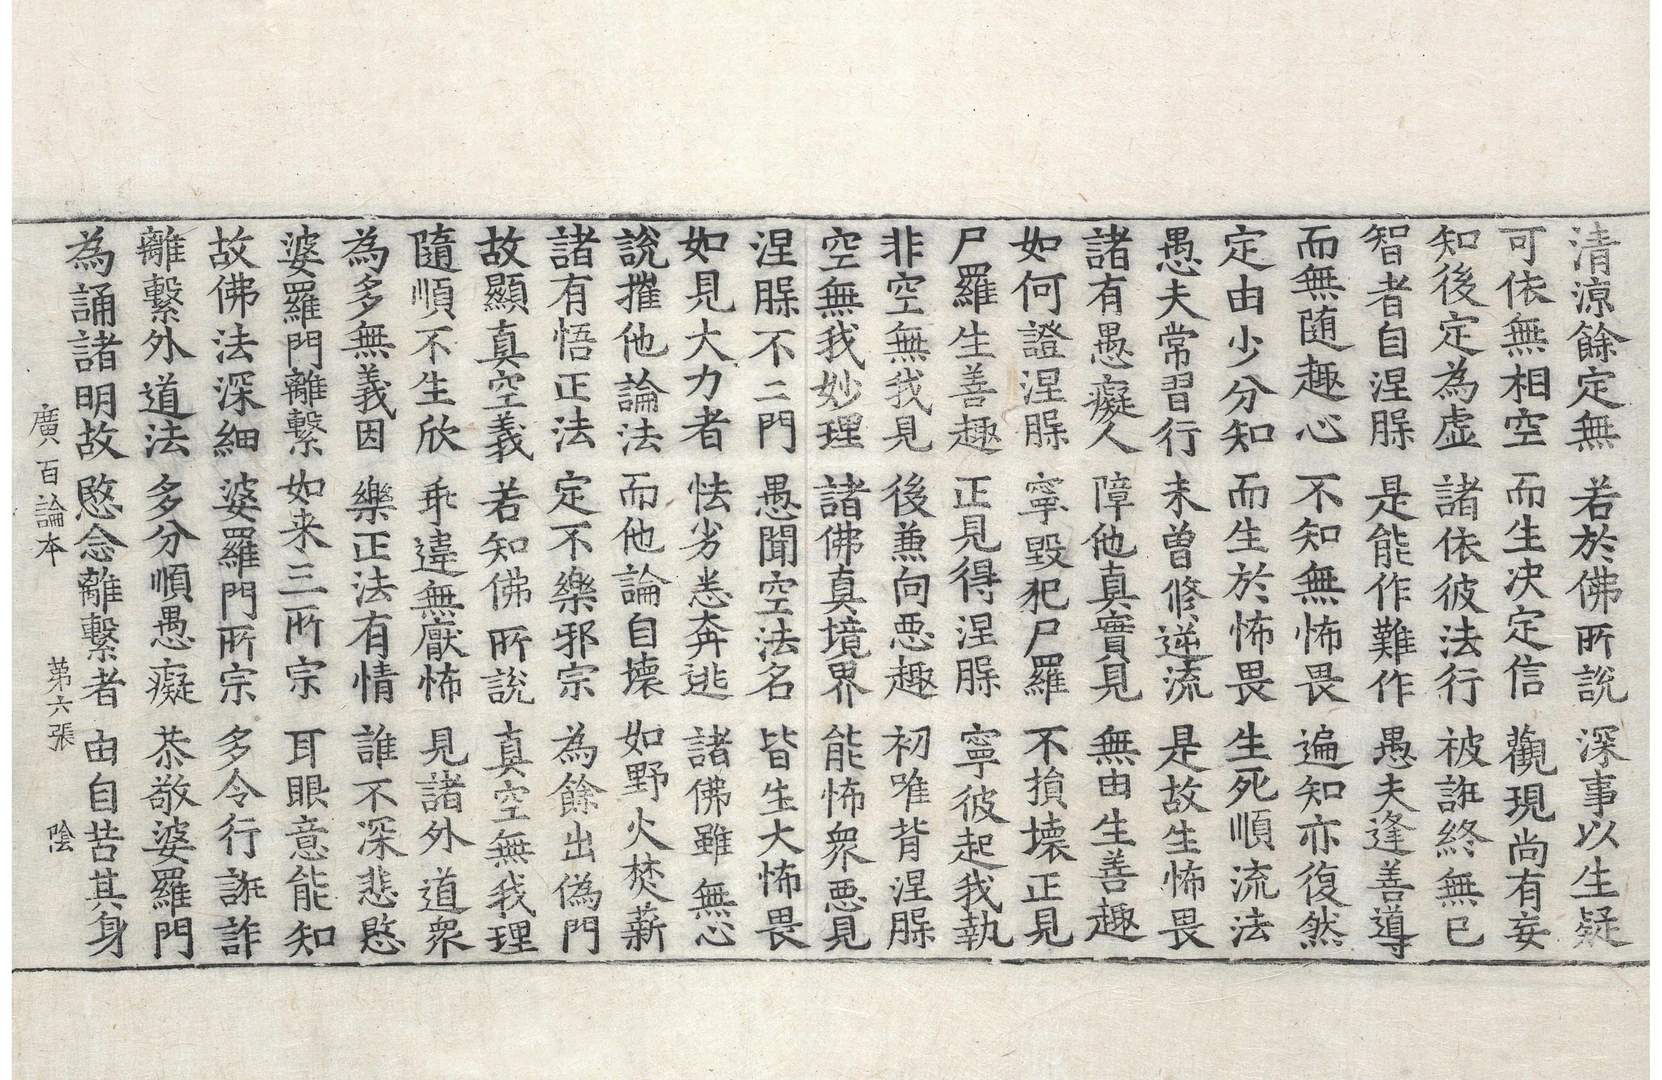 清涼餘定無　若於佛所說　深事以生疑
可依無相空　而生决定信　觀現尚有妄
知後定為虛　諸依彼法行　被誑終無已
智者自涅槃　是能作難作　愚夫逢善導
而無随趣心　不知無怖畏　遍知亦復然
定由少分知　而生於怖畏　生死順流法
愚夫常習行　未曽修逆流　是故生怖畏
諸有愚癡人　障他真實見　無由生善趣
如何證涅槃　寧毀犯尸羅　不損壞正見
尸羅生善趣　正見得涅槃　寧彼起我執
非空無我見　後兼向惡趣　初唯背涅槃
空無我妙理　諸佛真境界　能怖衆惡見
涅槃不二門　愚聞空法名　皆生大怖畏
如見大力者　怯劣悉奔逃　諸佛雖無心
說摧他論法　而他論自壞　如野火焚薪
諸有悟正法　定不樂邪宗　為餘出偽門
故顯真空義　若知佛所說　真空無我理
隨順不生欣　乖違無厭怖　見諸外道衆
為多無義因　樂正法有情　誰不深悲愍
婆羅門離繫　如来三所宗　耳眼意能知
故佛法深細　婆羅門所宗　多令行誑詐
離繫外道法　多分順愚癡　恭敬婆羅門
為誦諸明故　愍念離繫者　由自苦其身
廣百論本　第六張　陰